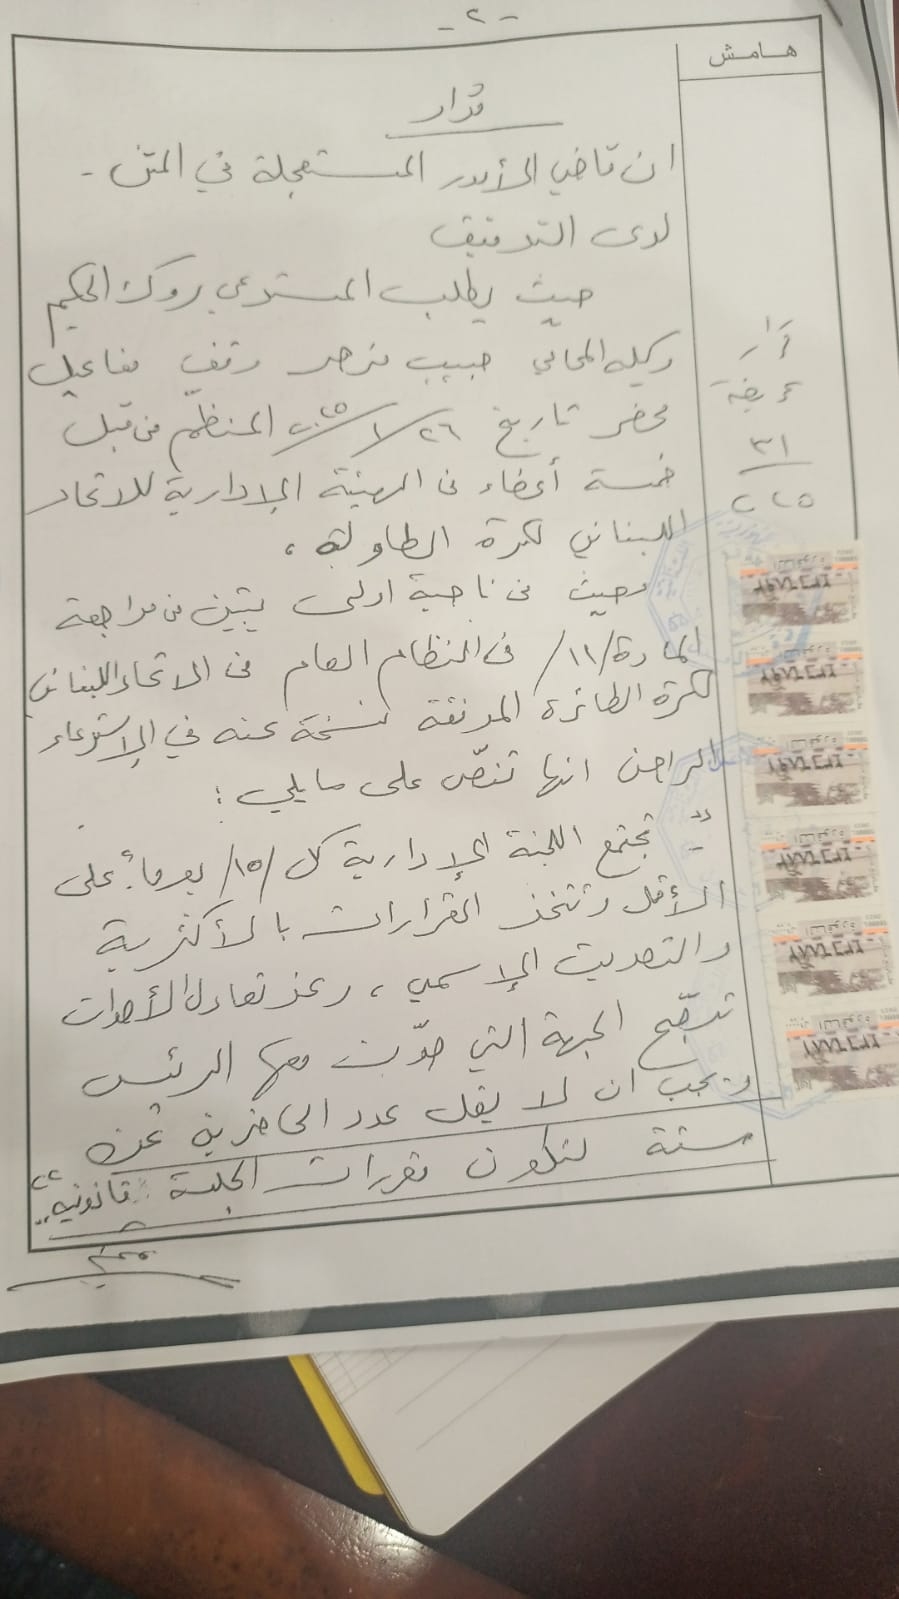 - ٢ -
هامش
قرار
ان قاضي الأمور المستعجلة في المتن -
لدى التدقيق
حيث يطلب المستدعي روك الحكيم
وكيله المحامي حبيب وقف مفاعيل
محضر تاريخ ٢٦/١/٢٠٢٥ المنظم من قبل
خمسة أعضاء من الهيئة الإدارية للاتحاد
اللبناني لكرة الطاولة،
وحيث من ناحية اولى يتبين من مراجعة
المادة /١١/ من النظام العام من الاتحاد اللبناني
لكرة الطائرة المرفقة نسخة عنه في الاستدعاء
الراهن انها تنصّ على ما يلي :
" تجتمع اللجنة الإدارية كل /١٥/ يوماً على
الأقل وتتخذ القرارات بالأكثرية
والتصويت الإسمي، وعند تعادل الأصوات
ترجّح الجهة التي صوّت معها الرئيس
ويجب ان لا يقل عدد الحاضرين عن
ستة لتكون مقررات الجلسة قانونية"
قرار
عريضة
٣١
٢٠٢٥